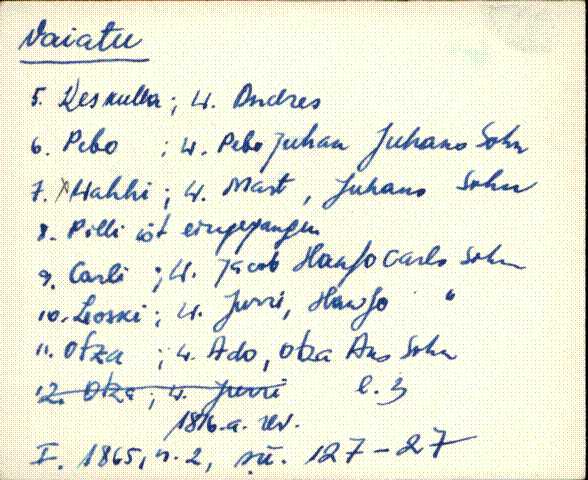 Vaiatu
5. Keskulla; W. Andres
6. Pebo ; W. Pebo Juhan Juhans Sohn
7. Mahhi; W. Mart, Juhans Sohn
8. Pilli ist eingegangen
9. Carli ; W. Jacob Hanso Carls Sohn
10. Leoski; W. Jurri, Hanso "
11. Otza ; W. Ado, Otza Ans Sohn
12. Otza; W. Jurri l. 3
1816.a. rev.
I. 1865, n. 2, sü. 127-27